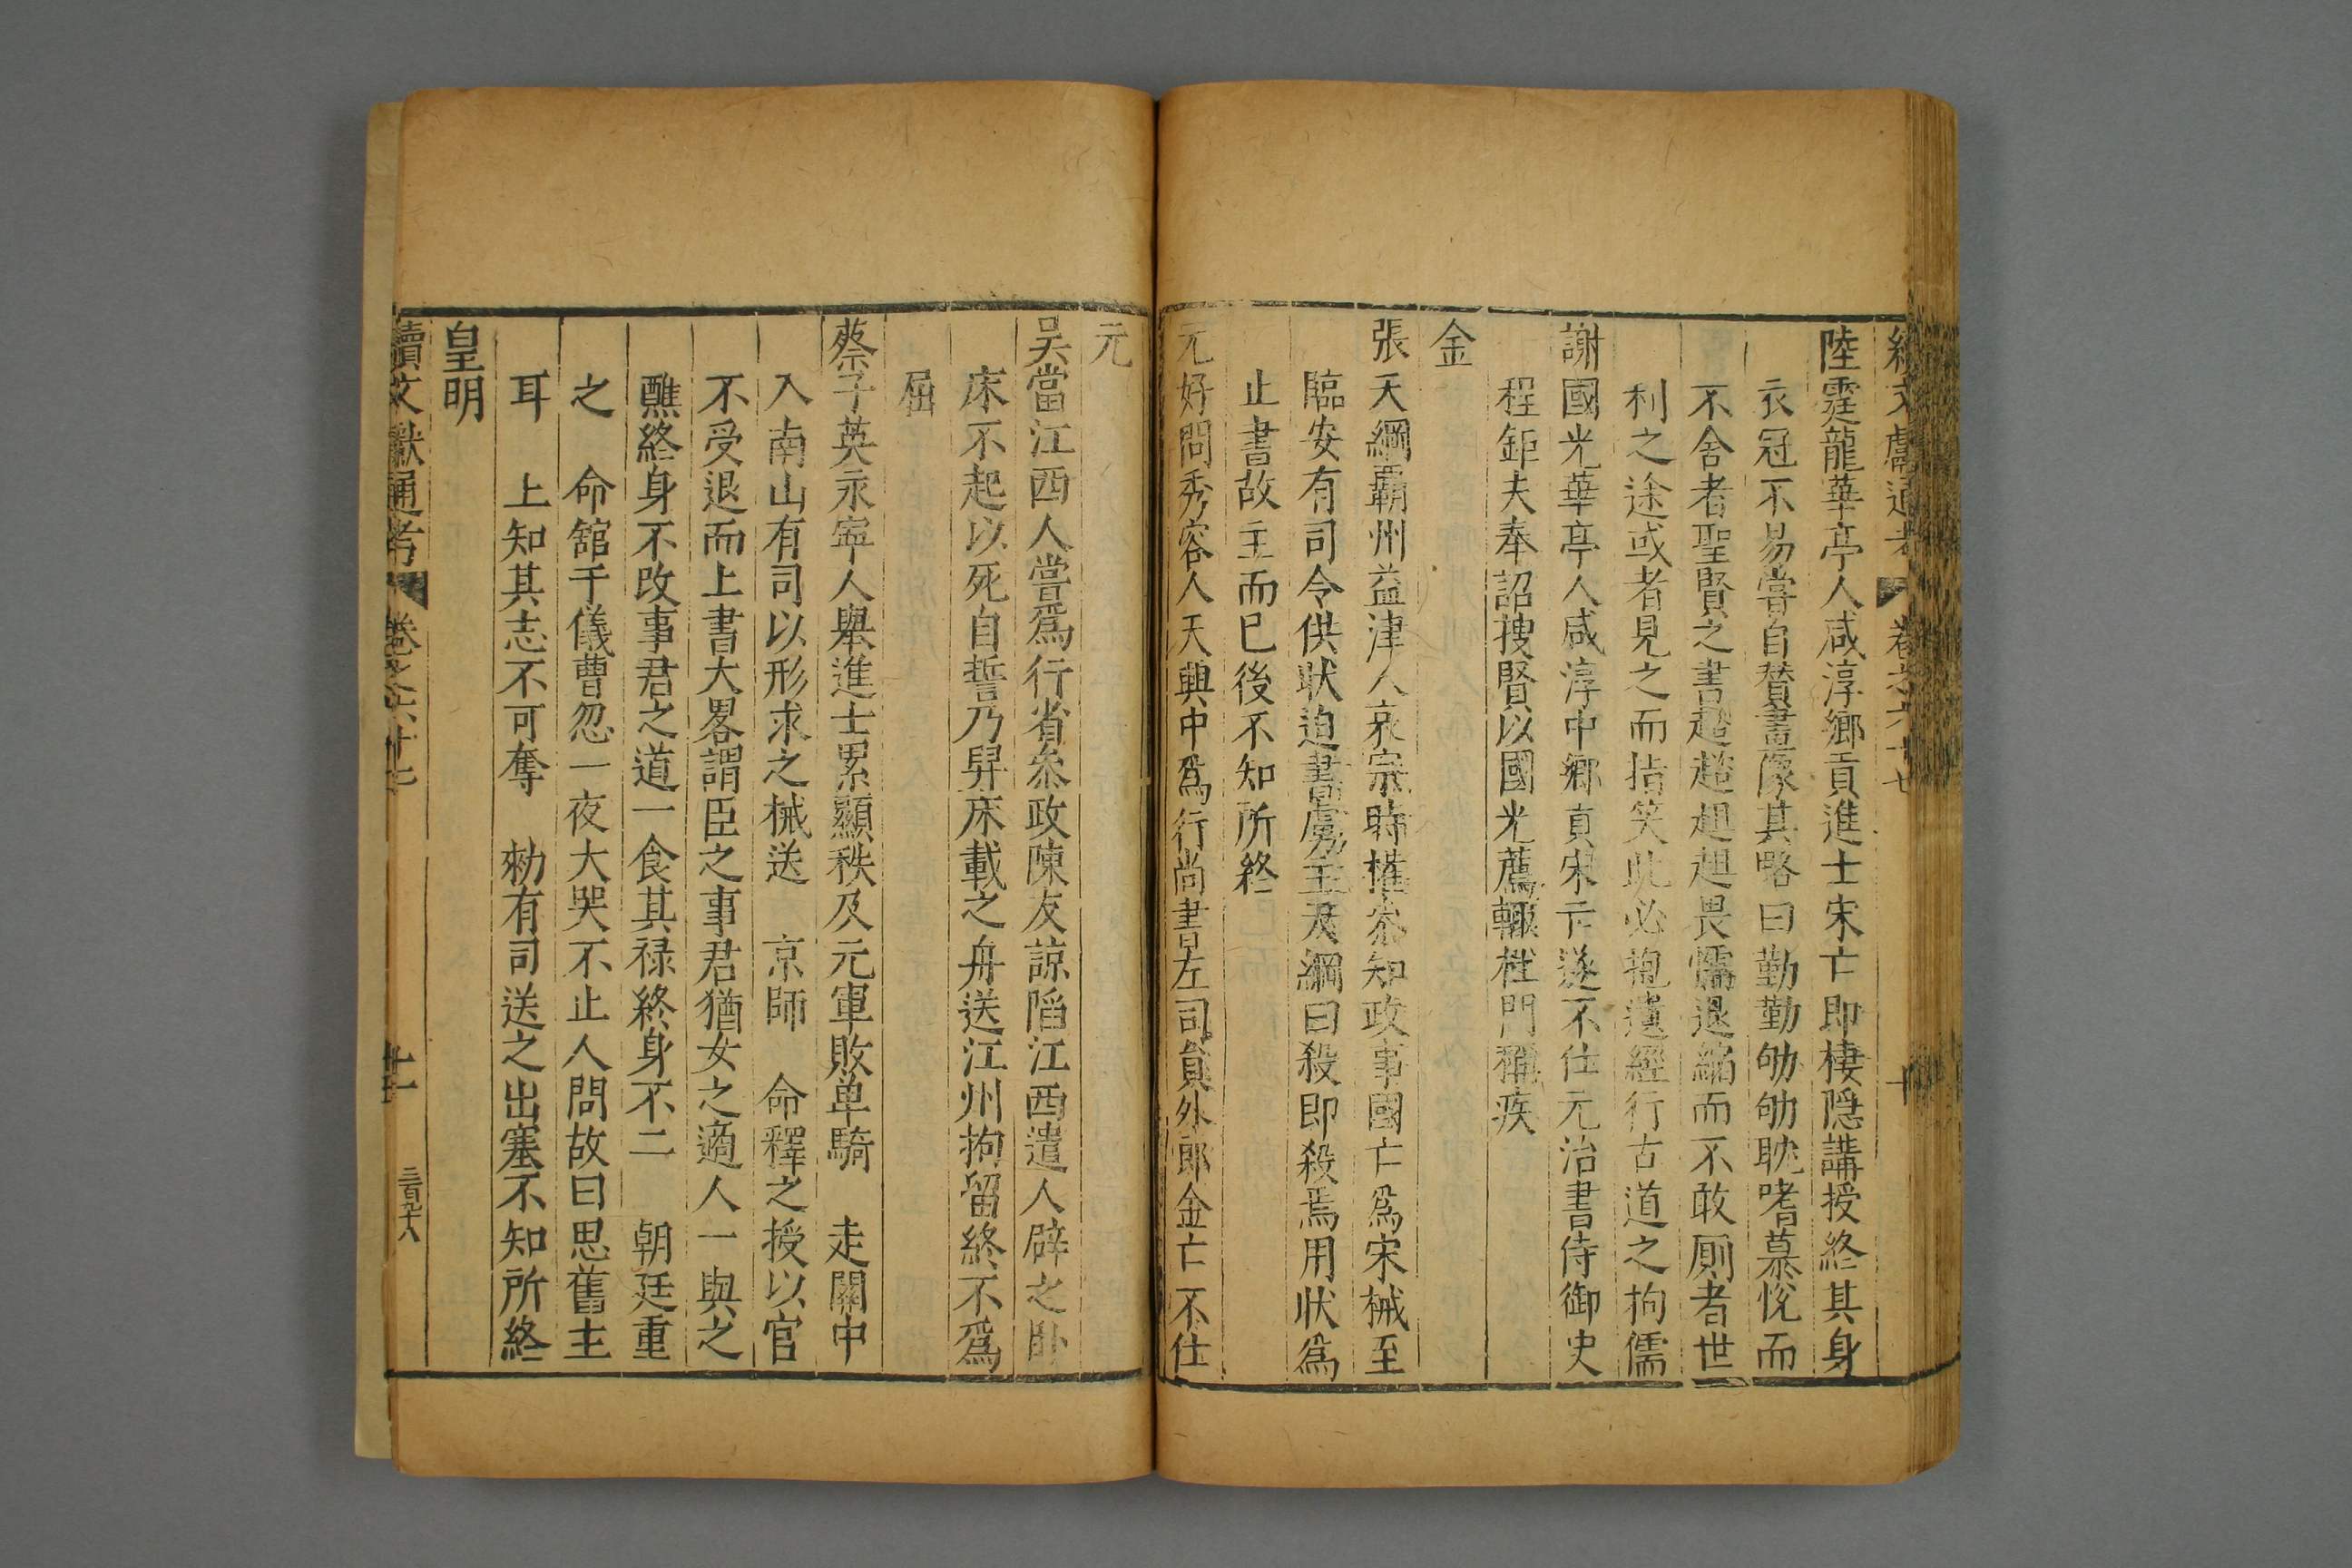 續文獻通考 卷之六十七 十
陸霆龍華亭人咸淳鄉貢進士宋亡即棲隱講授終其身
衣冠不易嘗自賛畫像其略曰勤勤劬劬耽嗜慕悅而
不舍者聖賢之書趑趑趄趄畏懦退縮而不敢厠者世
利之途或者見之而指笑此必抱遺經行古道之拘儒
謝國光華亭人咸淳中鄉貢宋亡遂不仕元治書侍御史
程鉅夫奉詔搜賢以國光薦輒杜門稱疾
金
張天綱霸州益津人哀宗時權叅知政事國亡爲宋械至
臨安有司令供狀迫書虜主天綱曰殺即殺焉用狀爲
止書故主而已後不知所終
元好問秀容人天興中爲行尚書左司員外郎金亡不仕
元
吴當江西人嘗爲行省叅政陳友諒陷江西遣人辟之卧
床不起以死自誓乃舁床載之舟送江州拘留終不爲
屈
蔡子英永寧人舉進士累顯秩及元軍敗单騎 走關中
入南山有司以形求之械送 京師 命釋之授以官
不受退而上書大畧謂臣之事君猶女之適人一與之
醮終身不改事君之道一食其禄終身不二 朝廷重
之 命舘于儀曹忽一夜大哭不止人問故曰思舊主
耳 上知其志不可奪 勑有司送之出塞不知所終
皇明
續文獻通考 卷之六十七 十一 三百九十八